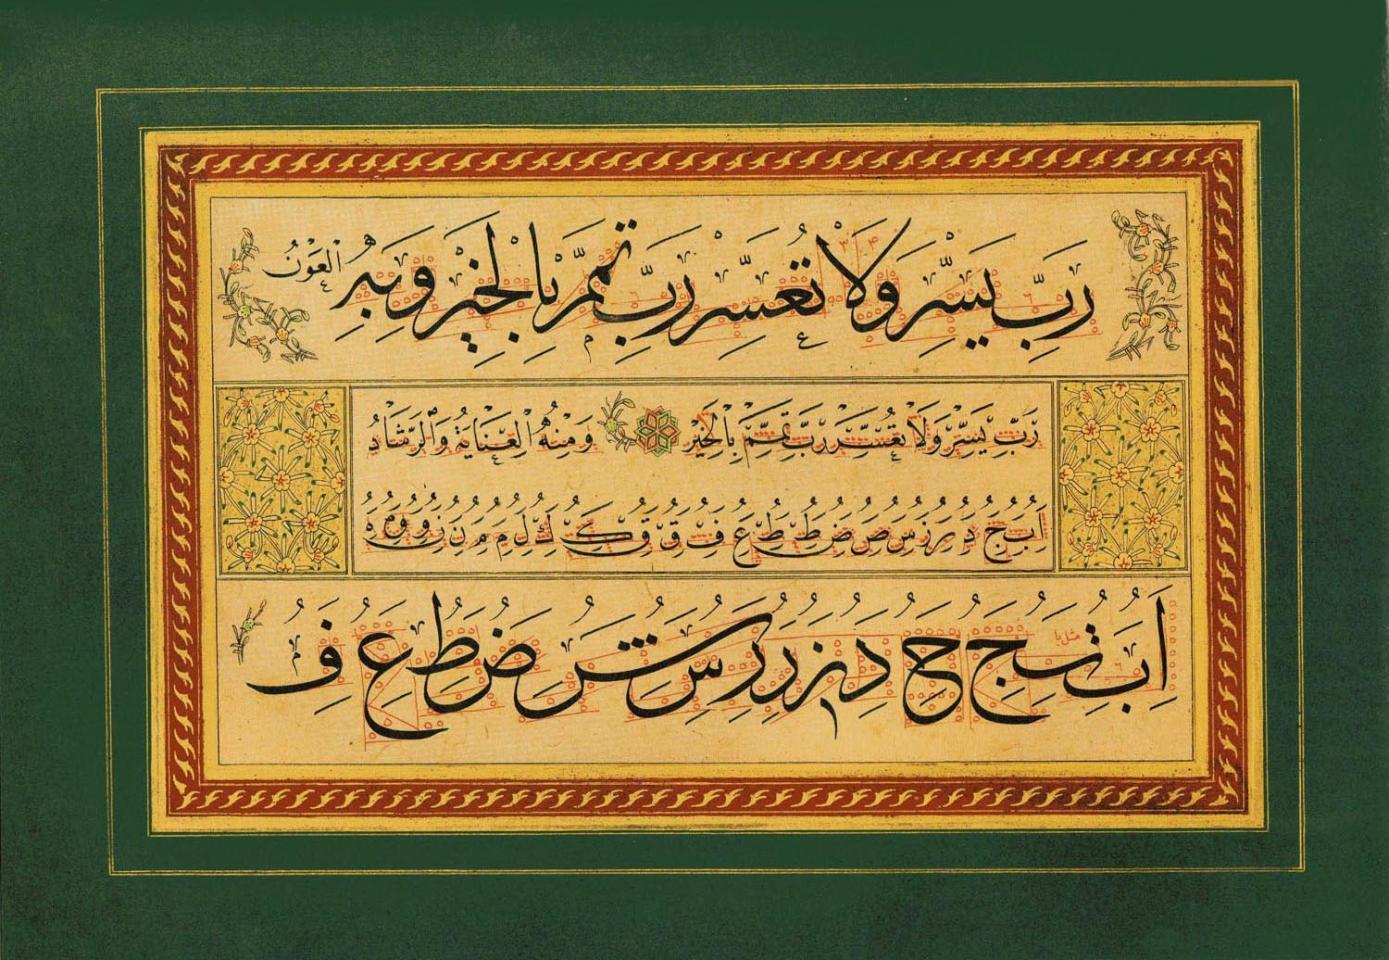 رَبِّ يَسِّرْ وَلَا تُعَسِّرْ رَبِّ تَمِّمْ بِالْخَيْرِ وَبِهِ الْعَوْنُ
رَبِّ يَسِّرْ وَلَا تُعَسِّرْ رَبِّ تَمِّمْ بِالْخَيْرِ وَمِنْهُ الْعِنَايَةُ وَالرَّشَادُ
ا ب ج د ر ز س ص ض ط ظ ع ف ق ك ل م ن و ه
ا ب ت ج ح د ر ز س ش ض ط ع ف